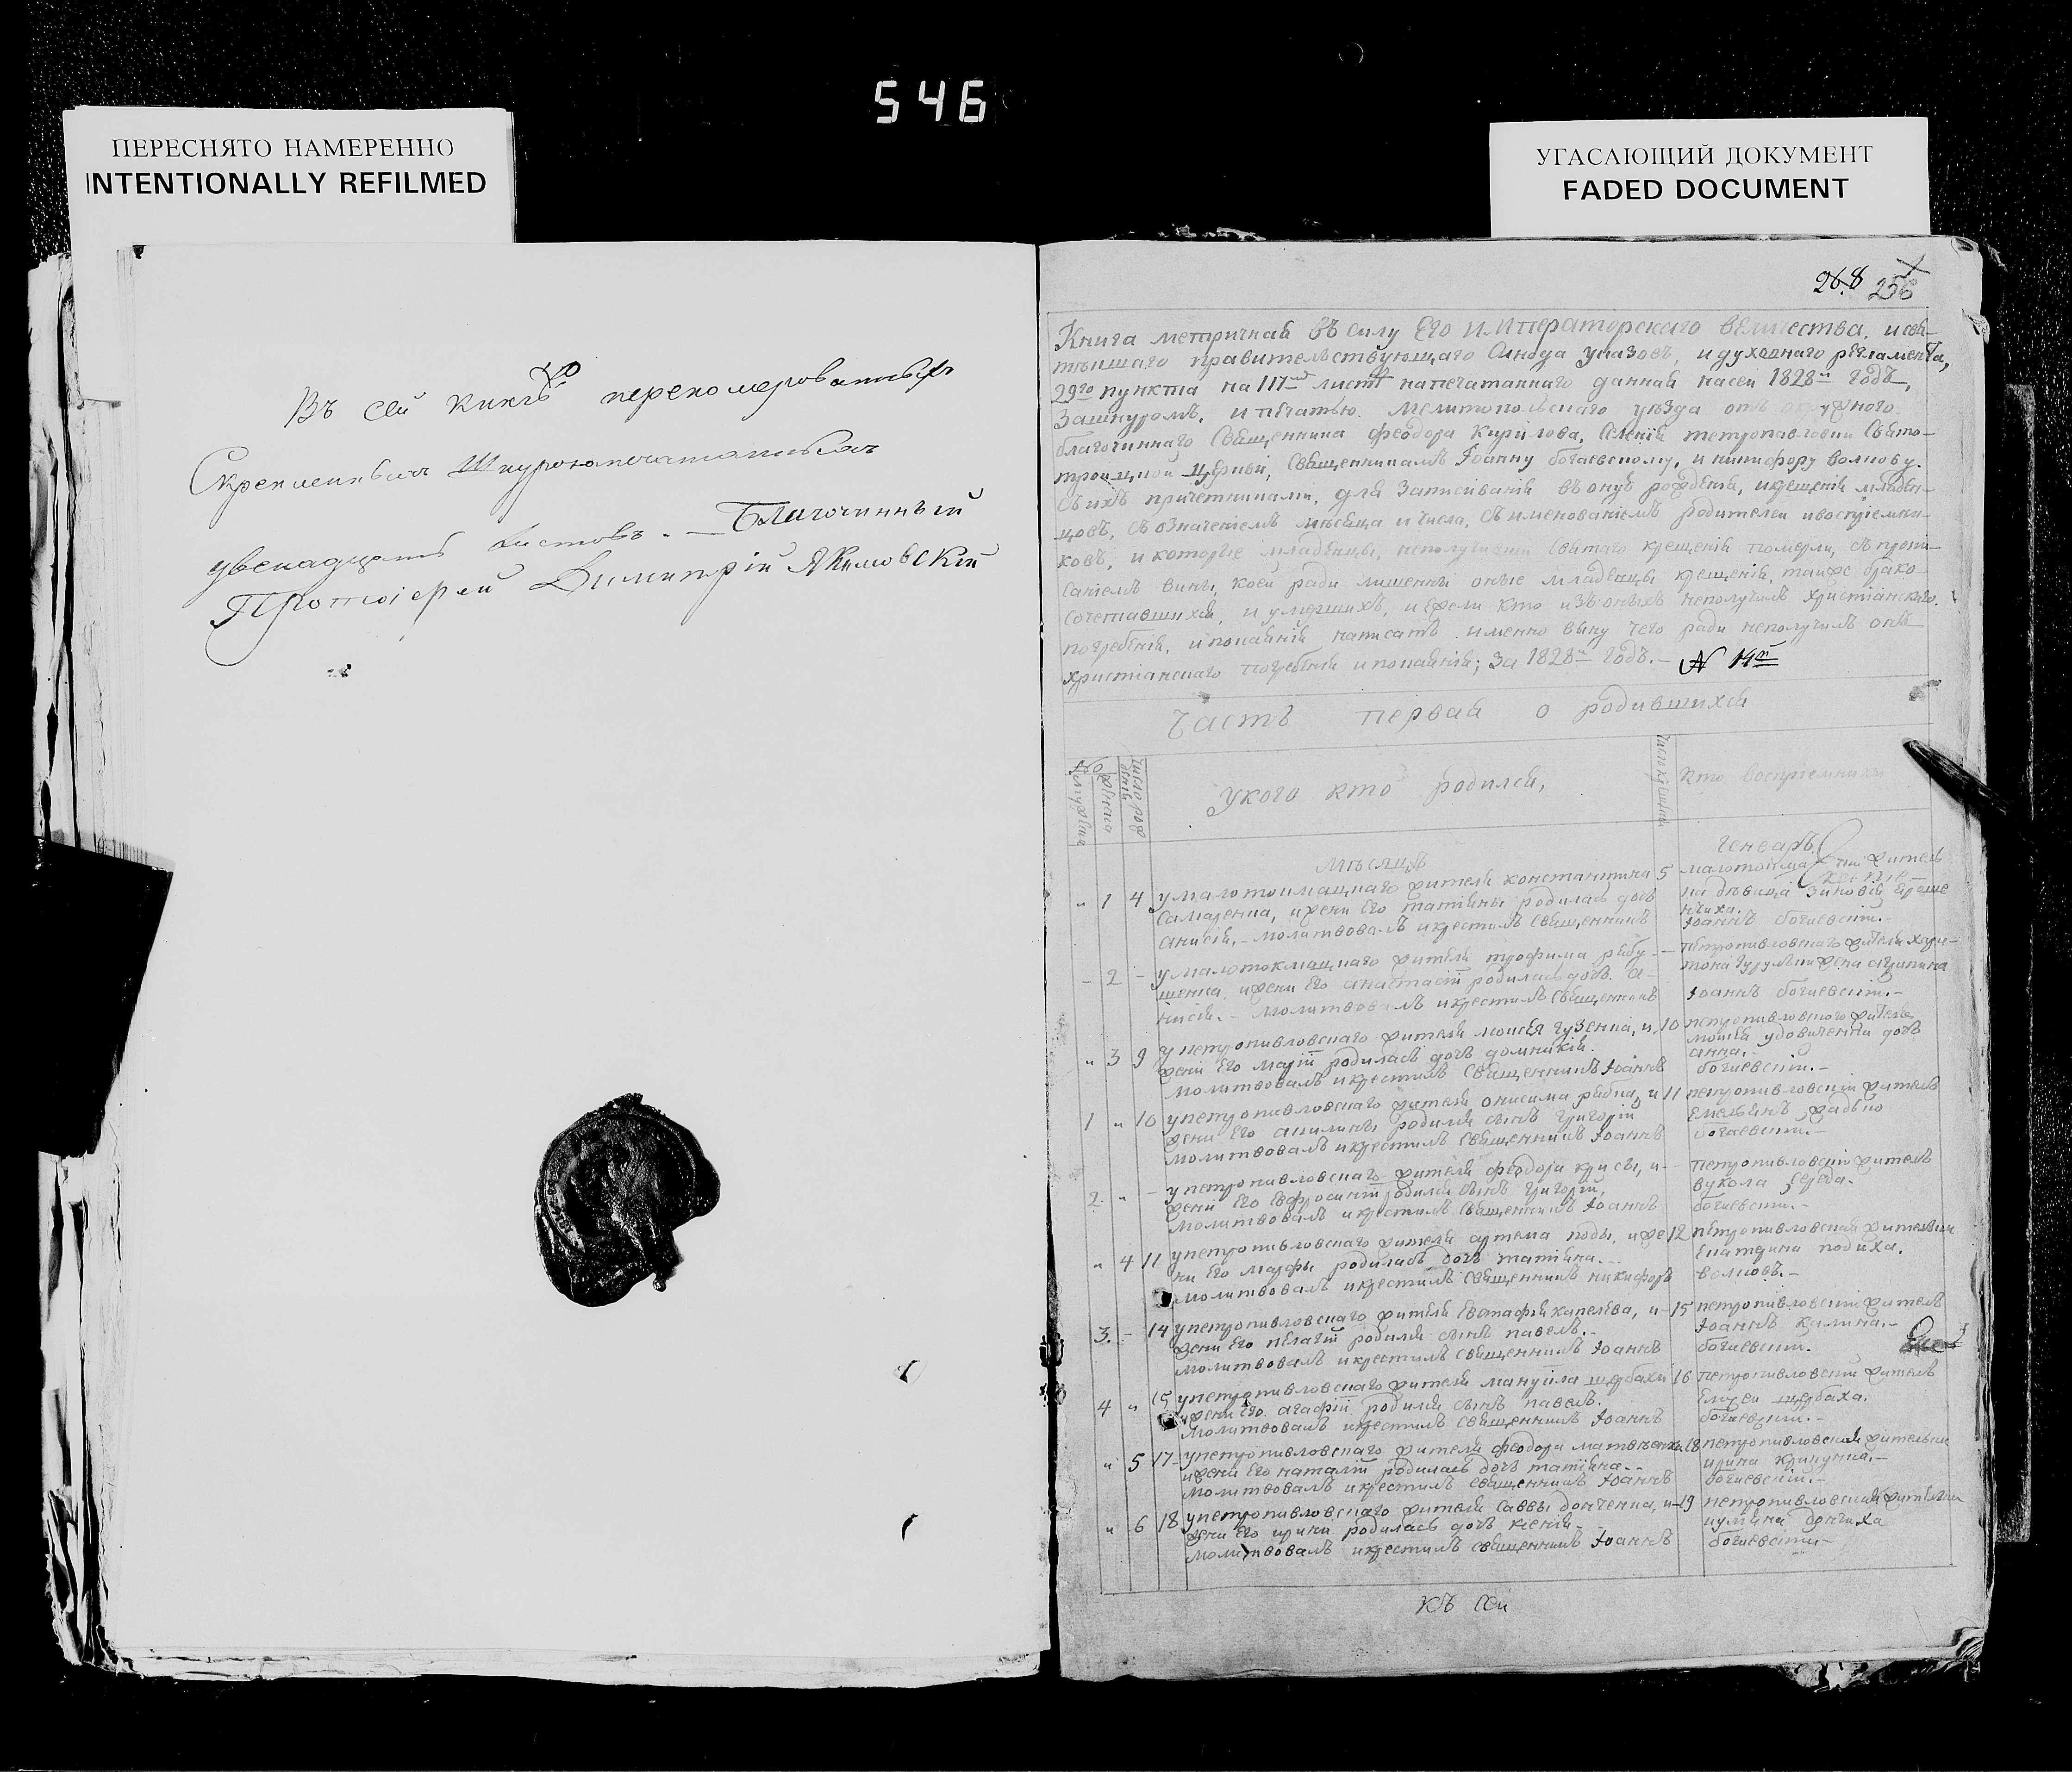 546
ПЕРЕСНЯТО НАМЕРЕННО
INTENTIONALLY REFILMED
УГАСАЮЩИЙ ДОКУМЕНТ
FADED DOCUMENT
Въ сей книгѣ перенomерованныхъ
Скрепленныхъ Шнурозапечатанныхъ
двенадцать Листовъ. — Благочинный
Протоіерей Димитрій Акимовскій
268 256
Книга метричная въ силу Его Императорскаго величества, и свя-
тѣйшаго правительствующаго Синода указовъ, и духовнаго регламента,
29го пункта на 117мъ листѣ напечатаннаго данная на сей 1828й годъ,
Зашнуромъ, и печатью. Мелитопольскаго уѣзда отъ окружного
благочиннаго Священника феодора Кирилова, Селенія петропавловки Свято-
троицкой церкви, Священникамъ Іоанну богаевскому, и никифору волкову.
Съ ихъ причетниками, для Записиванія въ онуъ рожденія, и крещенія младен-
цовъ, съ означеніемъ мѣсяца и числа, съ именованіемъ родителей и воспріемни-
ковъ, и которые младенцы, неполучивши Святаго крещенія померли, съ пропи-
саніемъ вины, коей ради лишенны оные младенцы крещенія, такъже брако-
сочетавшихся, и умершихъ, и ежели кто изъ оныхъ неполучилъ христіанскаго
погребенія, и покаянія написать именно вину чего ради неполучилъ онъ
христіанскаго погребенія и покаянія; за 1828й годъ. — № 14й
Часть первая о родившихся
У кого кто родился,
Число крещенія
Кто воспріемники
Мѣсяцъ
Генварь
" 1 4 у малотокмацкаго жителя константина 5
Самаренка, и жени Его татіяны родилась дочь
анисія. — молитвовалъ и крестилъ Священникъ
на дѣвица Зиновія
Іоаннъ богаевскій. —
- 2 - у малотокмацкаго жителя трофима рябу-
шенка, и жени Его анастасіи родилась дочь а-
нисія. — молитвовалъ и крестилъ Священникъ
петропавловскаго жителя хари-
тона жена агрипина
Іоаннъ богаевскій. —
" 3 9 у петропавловскаго жителя моисея гузенка, и 10
жени Его маріи родилась дочь домникія.
молитвовалъ и крестилъ Священникъ Іоаннъ
петропавловского жителя
моисея удовиченка дочь
анна. —
богаевскій. —
1 " 10 у петропавловскаго жителя онисима рябка, и 11
жени Его акилины родился сынъ григорій
молитвовалъ и крестилъ Священникъ Іоаннъ
петропавловскій житель
Емельянъ
богаевскій. —
2. " - у петропавловскаго жителя феодора крисы, и -
жени Его Евфросиніи родился сынъ григорій,
молитвовалъ и крестилъ Священникъ Іоаннъ
петропавловскій житель
вукола Середа.
богаевскій. —
" 4 11 у петропавловскаго жителя артема коды, и же 12
ни Его марфы родилась дочь татіяна. —
молитвовалъ и крестилъ Священникъ никифоръ
петропавловская жителька
Екатерина кодиха.
волковъ. —
3. - 14 у петропавловскаго жителя Евстафія капелева, и - 15
жени Его пелагіи родился сынъ павелъ. —
молитвовалъ и крестилъ священникъ Іоаннъ
петропавловскій житель
Іоаннъ калина. —
богаевскій.
4 " 15 у петропавловскаго жителя мануила щербахи 16
и жени Его агафіи родился сынъ павелъ.
молитвовалъ и крестилъ священникъ Іоаннъ
петропавловскій житель
Елисей щербаха.
богаевскій. —
" 5 17 - у петропавловскаго жителя феодора матвѣенка 18
и жени Его наталіи родилась дочь татіяна —
молитвовалъ и крестилъ священникъ Іоаннъ
петропавловская жителька
ирина крикунка. —
богаевскій. —
" 6 18 у петропавловскаго жителя Саввы донченка, и - 19
жени Его ирини родилась дочь ксенія —
молитвовалъ и крестилъ священникъ Іоаннъ
петропавловская жителька
акулина дончиха
богаевскій —
Къ сей